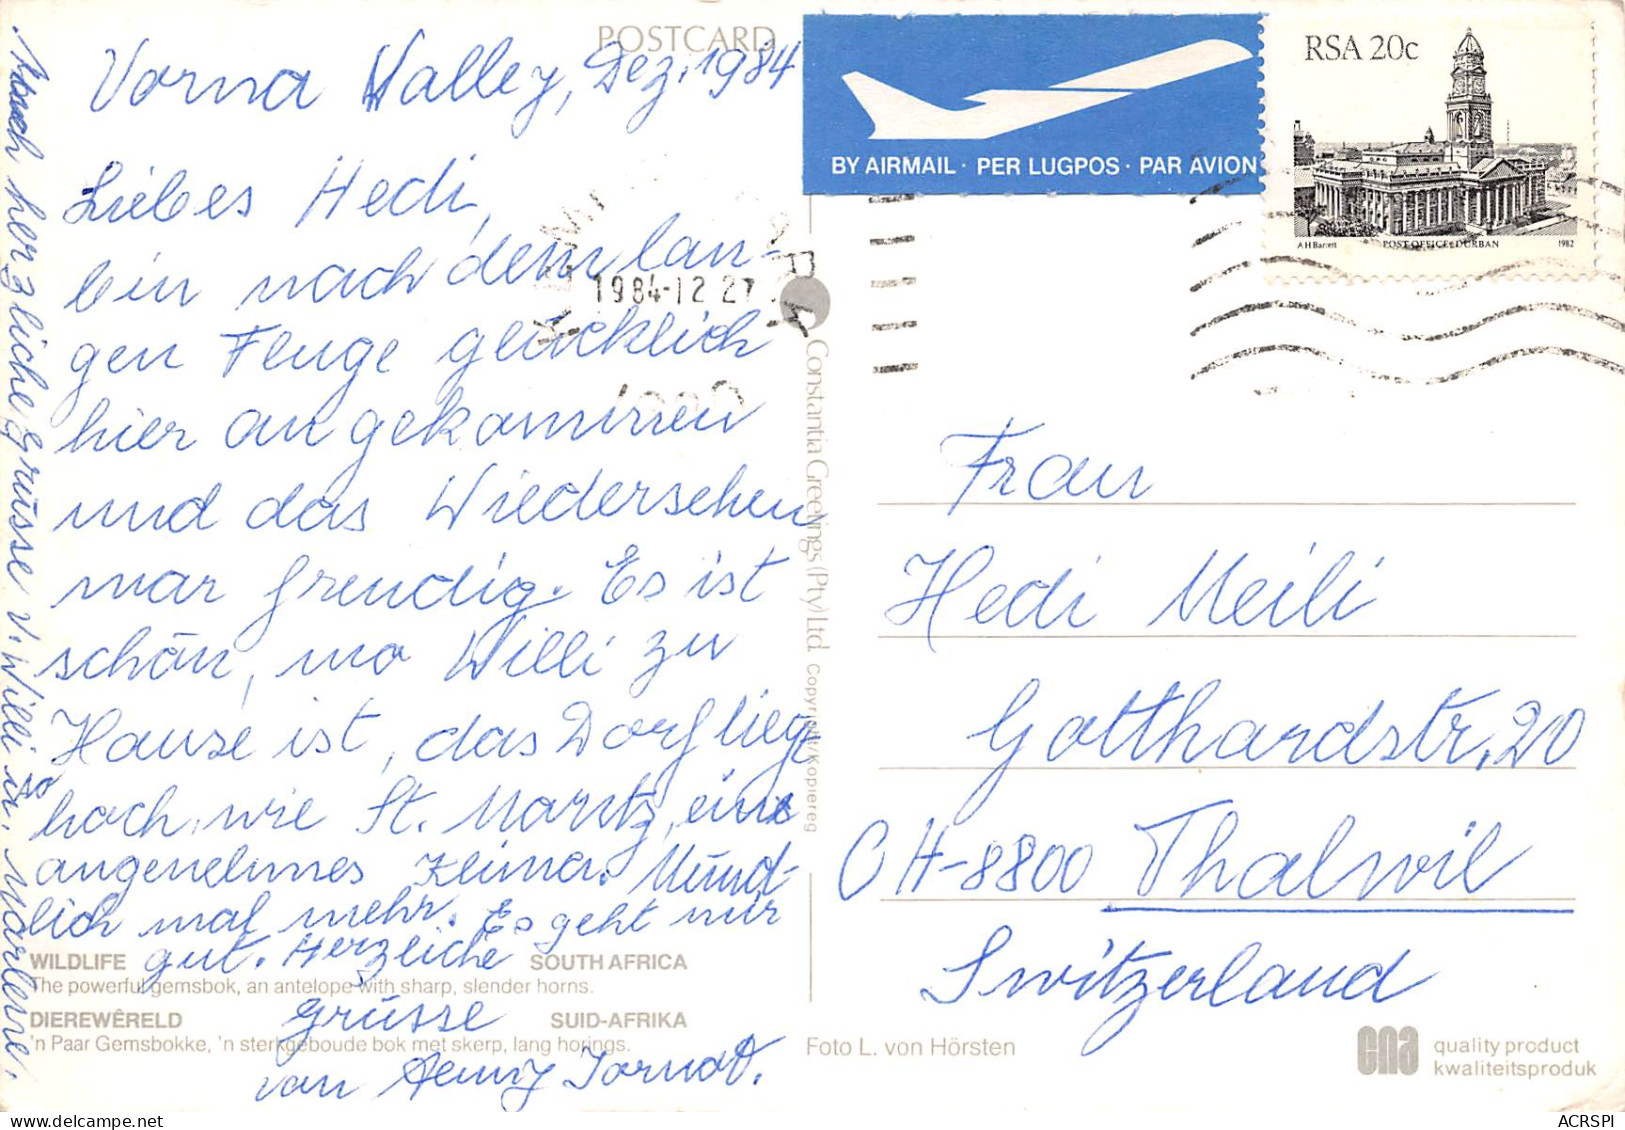 POSTCARD
Vorna Valley, Dez. 1984
Liebes Hedi,
bin nach dem lan-
gen Fluge glücklich
hier angekommen
und das Wiedersehen
war freudig. Es ist
schön, wo Willi zu
Hause ist, das Dorf liegt
so
hoch wie St. Moritz, eine
angenehmes Klima. Münd-
lich mal mehr. Es geht mir
gut. Herzliche
Grüsse
von
Auch herzliche Grüsse v. Willi u. Marlene.
WILDLIFE SOUTH AFRICA
The powerful gemsbok, an antelope with sharp, slender horns.
DIEREWÊRELD SUID-AFRIKA
'n Paar Gemsbokke, 'n sterkgeboude bok met skerp, lang horings.
Constantia Greetings (Pty) Ltd. Copyright/Kopiereg
BY AIRMAIL · PER LUGPOS · PAR AVION
RSA 20c
A H Barrett POST OFFICE, DURBAN 1982
1984-12 27
Frau
Hedi Meili
Gotthardstr. 20
CH-8800 Thalwil
Switzerland
Foto L. von Hörsten
cna quality product
kwaliteitsproduk
ACRSPI